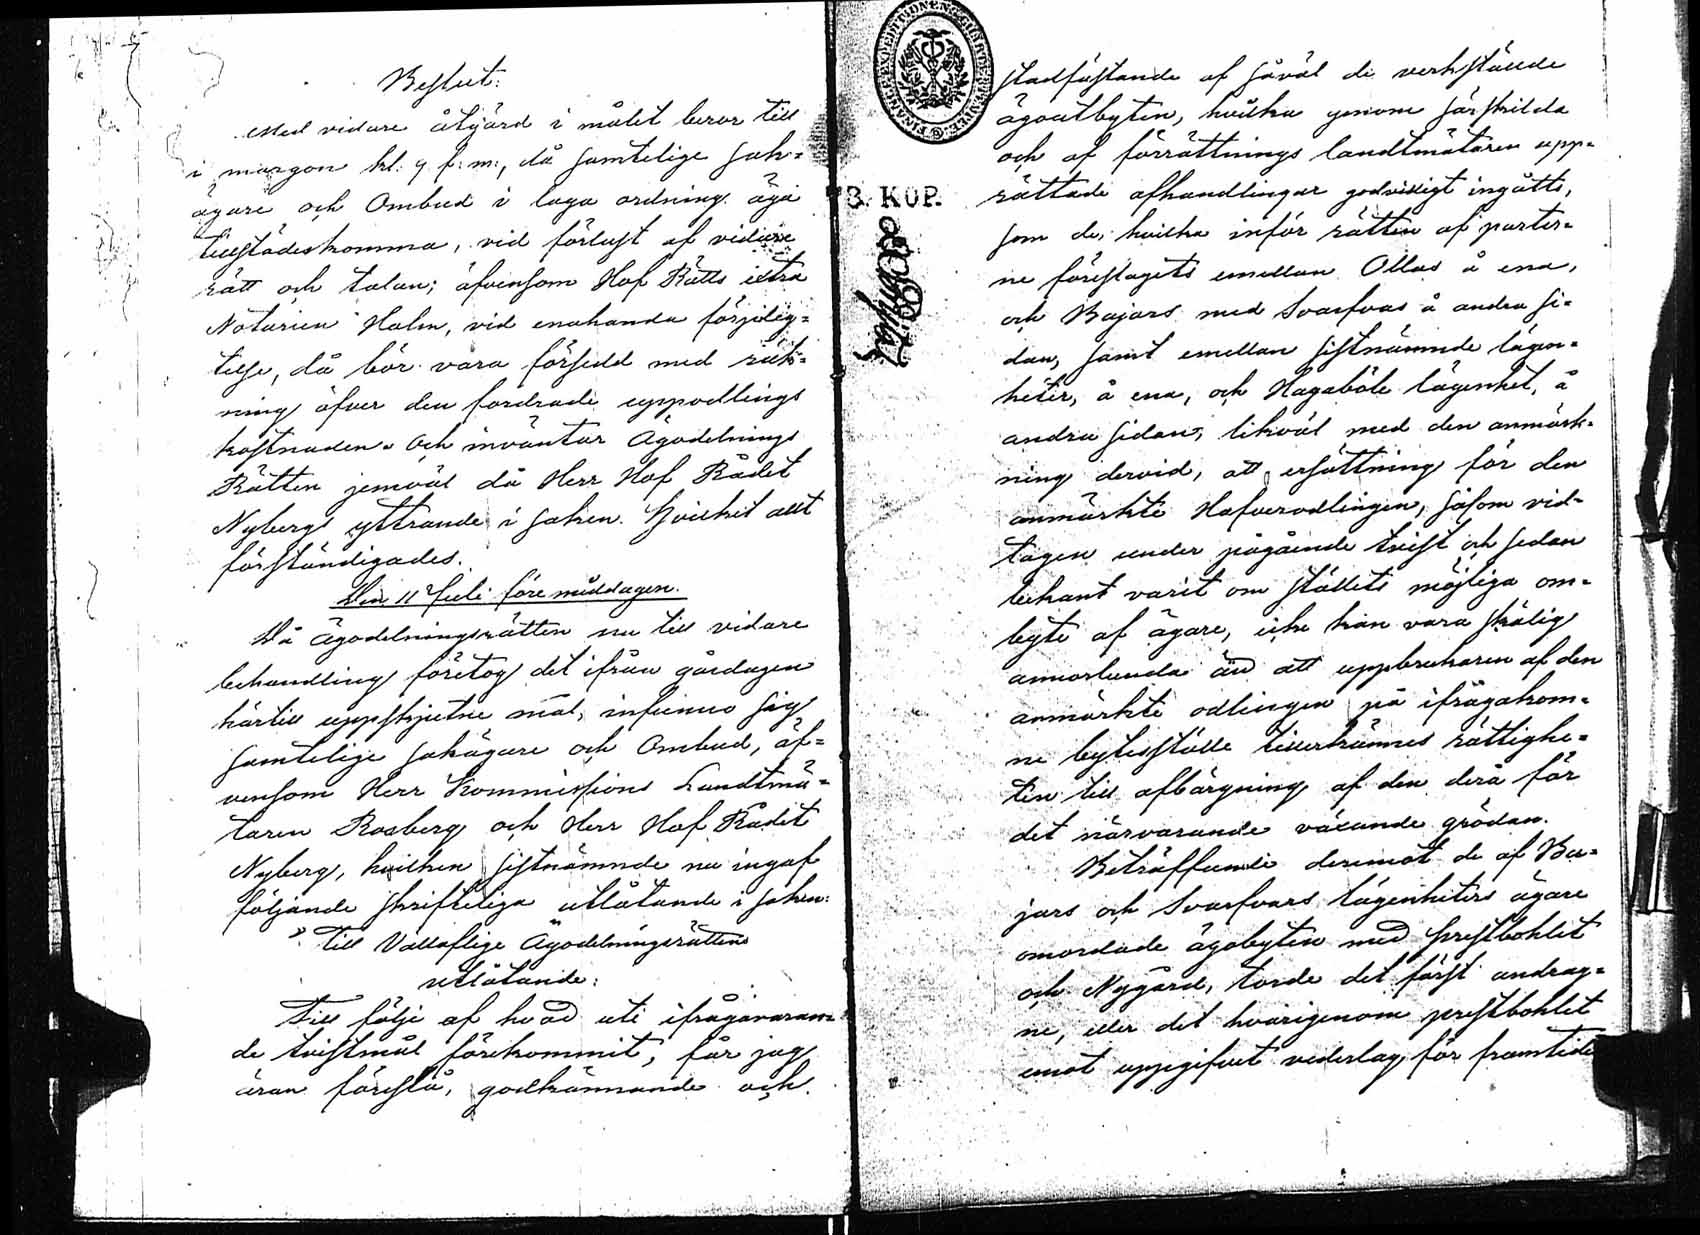 Beslut:
Med vidare åtgärd i målet beror till
i morgon kl. 9 f: m:, då samtelige sak-
ägare och Ombud i laga ordning äga
tillstädeskomma, vid förlust af vidare
rätt och talan; äfvensom Hof Rätts extra
Notarien Holm, vid enahanda förplig-
telse, då bör vara försedd med räk-
ning öfver den fordrade uppodlings
kostnaden. Och inväntar Ägodelnings
Rätten jemväl då Herr Hof Rådet
Nybergs yttrande i saken. Hvilket allt
förständigades.
Den 11 Juli före middagen.
Då Ägodelningsrätten nu till vidare
behandling företog det ifrån gårdagen
härtill uppskjutne mål, infunno sig
samtelige sakägare och Ombud, äf-
vensom Herr Kommissions Landtmä-
taren Rosberg och Herr Hof Rådet
Nyberg, hvilken sistnämnde nu ingaf
följande skrifteliga utlåtande i saken:
" Till Vällaflige Ägodelningsrättens
utlåtande:
Till följe af hvad uti ifrågavaran-
de tvistmål förekommit, får jag
äran föreslå, godkännande och
3. KOP.
stadfästande af såväl de verkstälde
ägoutbyten, hvilka genom särskilda
och af förrättnings landtmätaren upp-
rättade afhandlingar godvilligt ingåtts,
som de, hvilka inför rätten af parter-
ne föreslagits emellan Ollas å ena,
och Bajars med Svarfvars å andra si-
dan, samt emellan sistnämnde lägen-
heter, å ena, och Hagaböle lägenhet, å
andra sidan; likväl med den anmärk-
ning dervid, att ersättning för den
anmärkte Hafverodlingen, såsom vid-
tagen under pågående tvist och sedan
bekant varit om ställets möjliga om-
byte af ägare, icke kan vara skälig
annorlunda än att uppbrukaren af den
anmärkte odlingen på ifrågakom-
ne bytesställe tillerkännes rättighe-
ten till afbärgning af den derå för
det närvarande växande grödan.
Beträffande deremot de af Ba-
jars och Svarfvars lägenheters ägare
omordade ägobyten med prestbohlet
och Nygård, torde det först andrag-
ne, eller det hvarigenom prestbohlet
emot uppgifvet vederlag för framtide